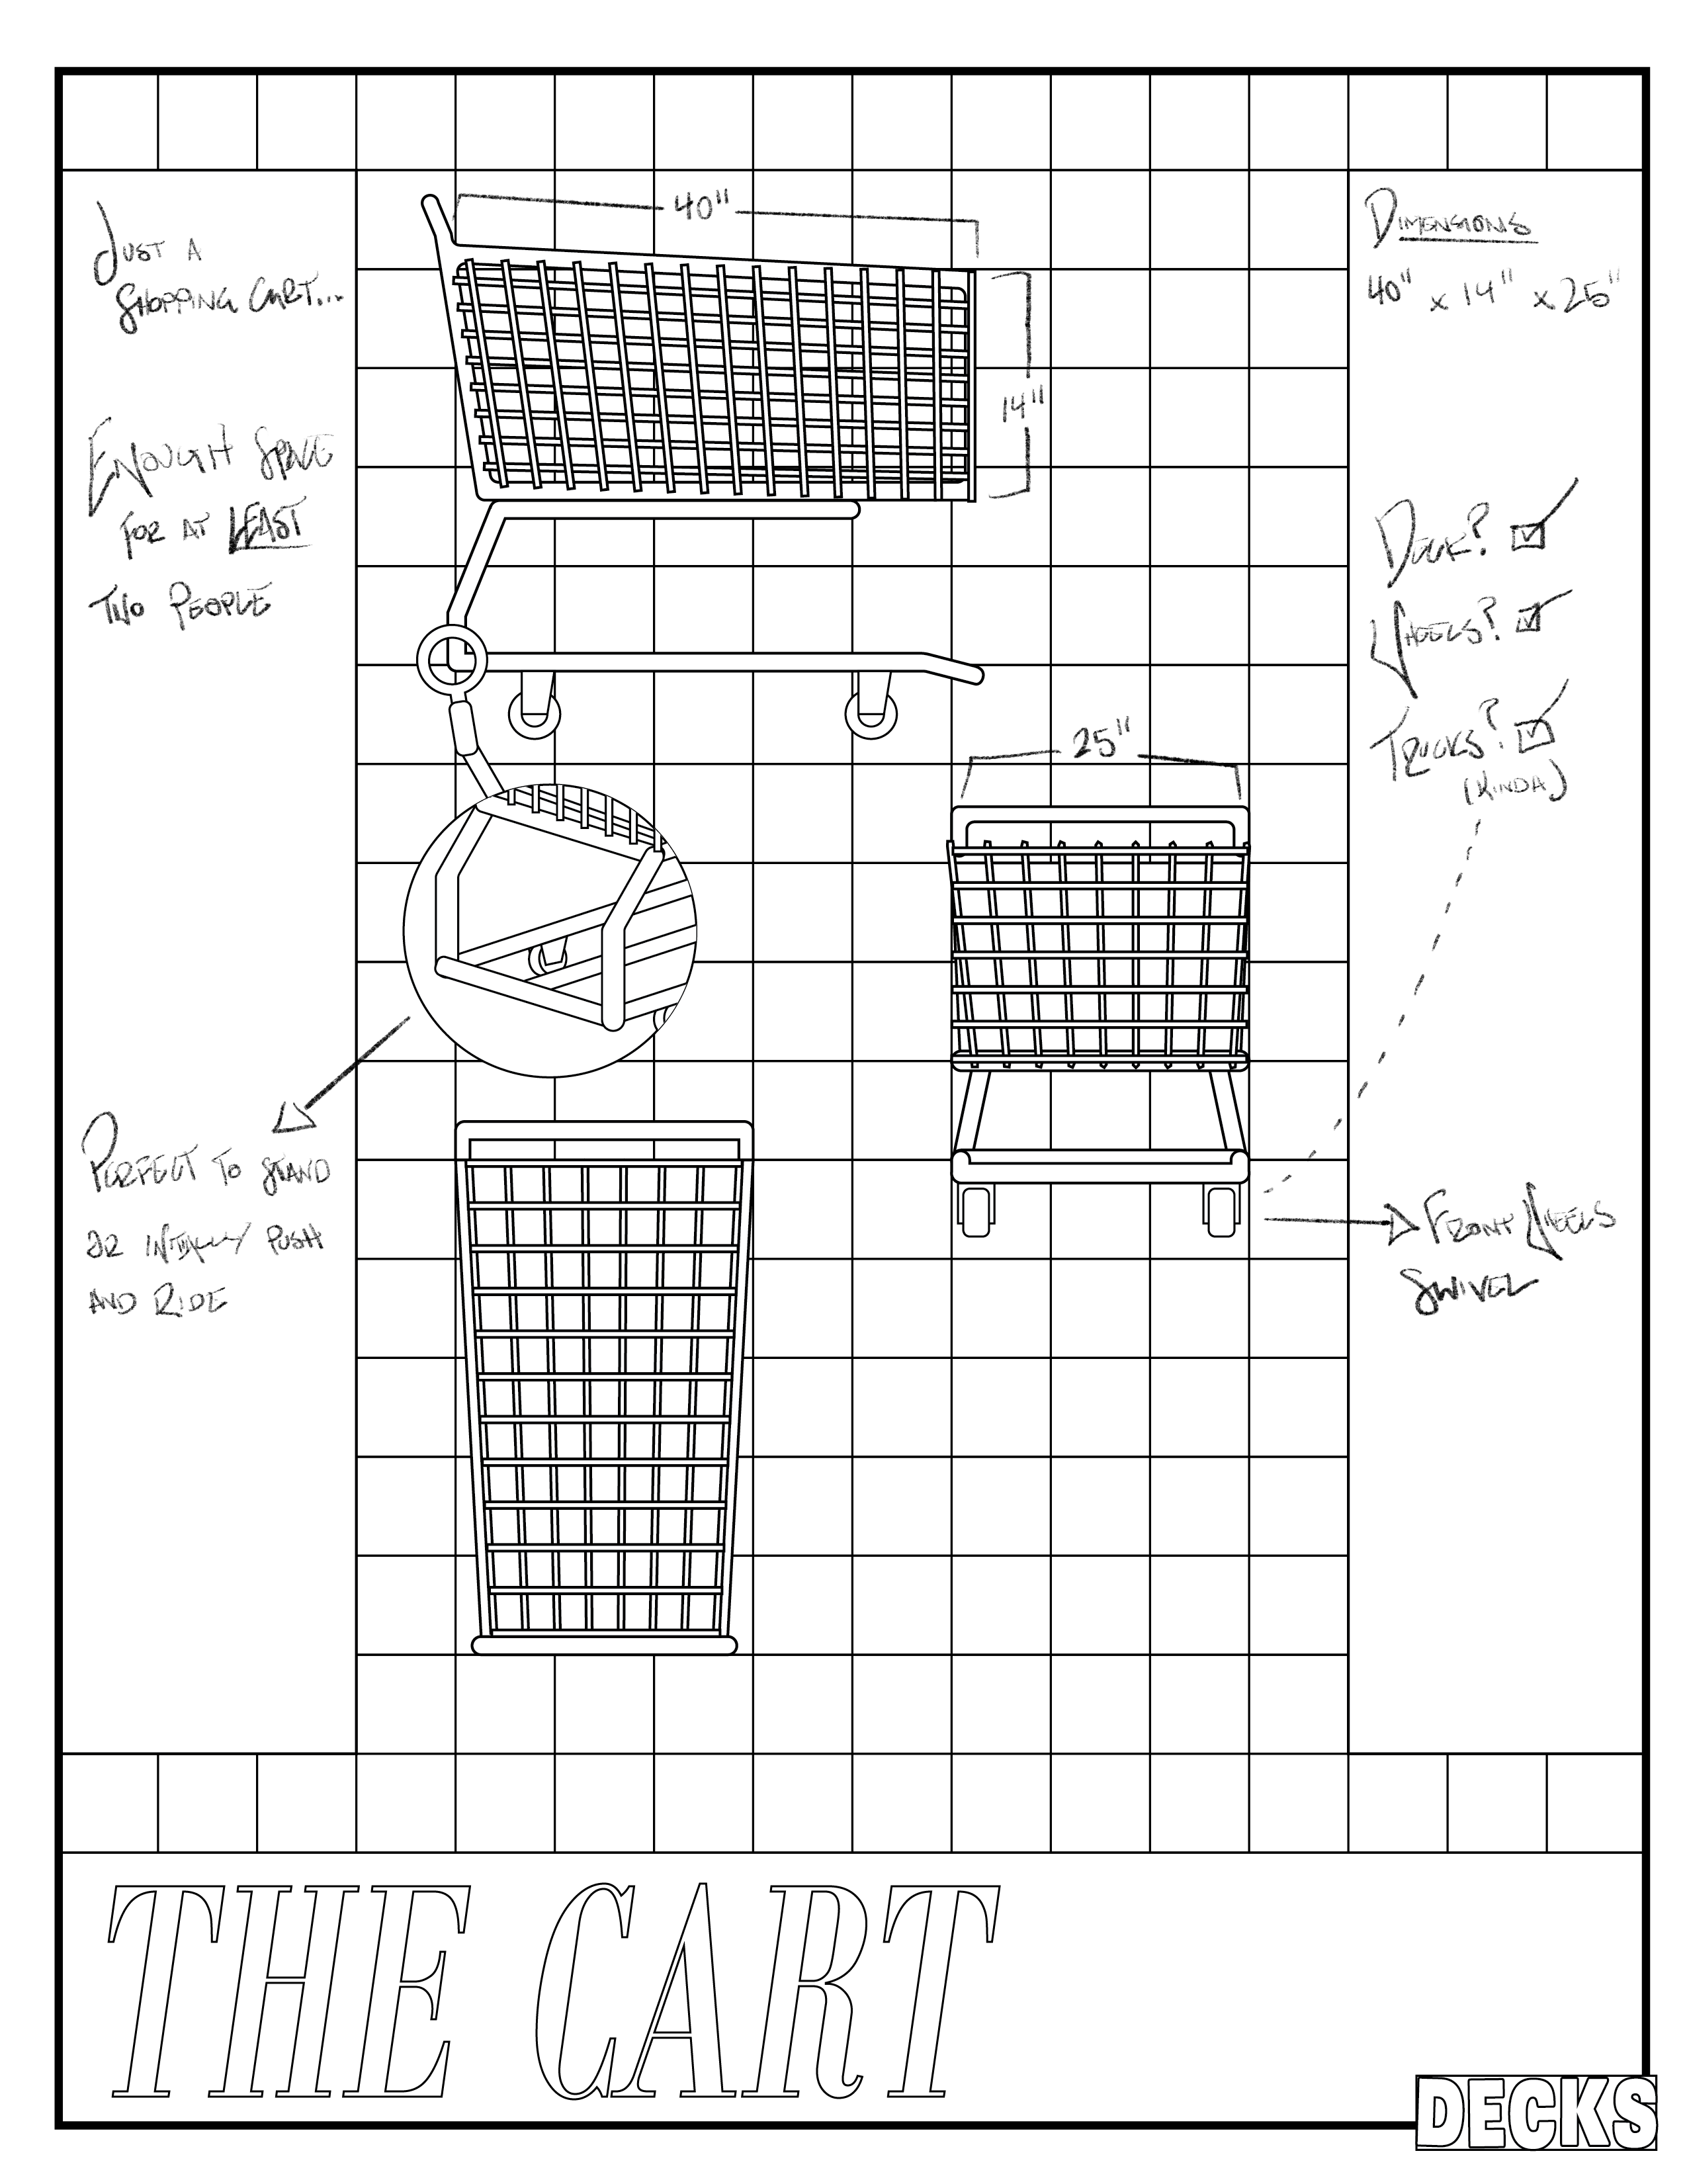 JUST A
SHOPPING CART...
ENOUGH SPACE
FOR AT LEAST
TWO PEOPLE
PERFECT TO STAND
OR PUSH
AND RIDE
40"
14"
25"
DIMENSIONS
40" x 14" x 25"
DECK?
WHEELS?
TRUCKS?
(KINDA)
FRONT WHEELS
SWIVEL
THE CART
DECKS